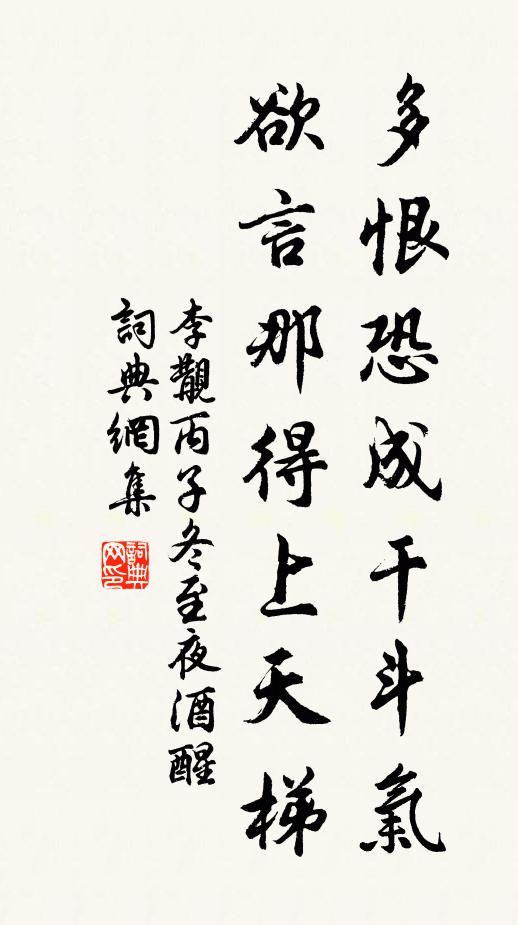 多恨恐成干斗氣
欲言那得上天梯
李覯丙子冬至夜酒醒
詞典網集
詞典网印